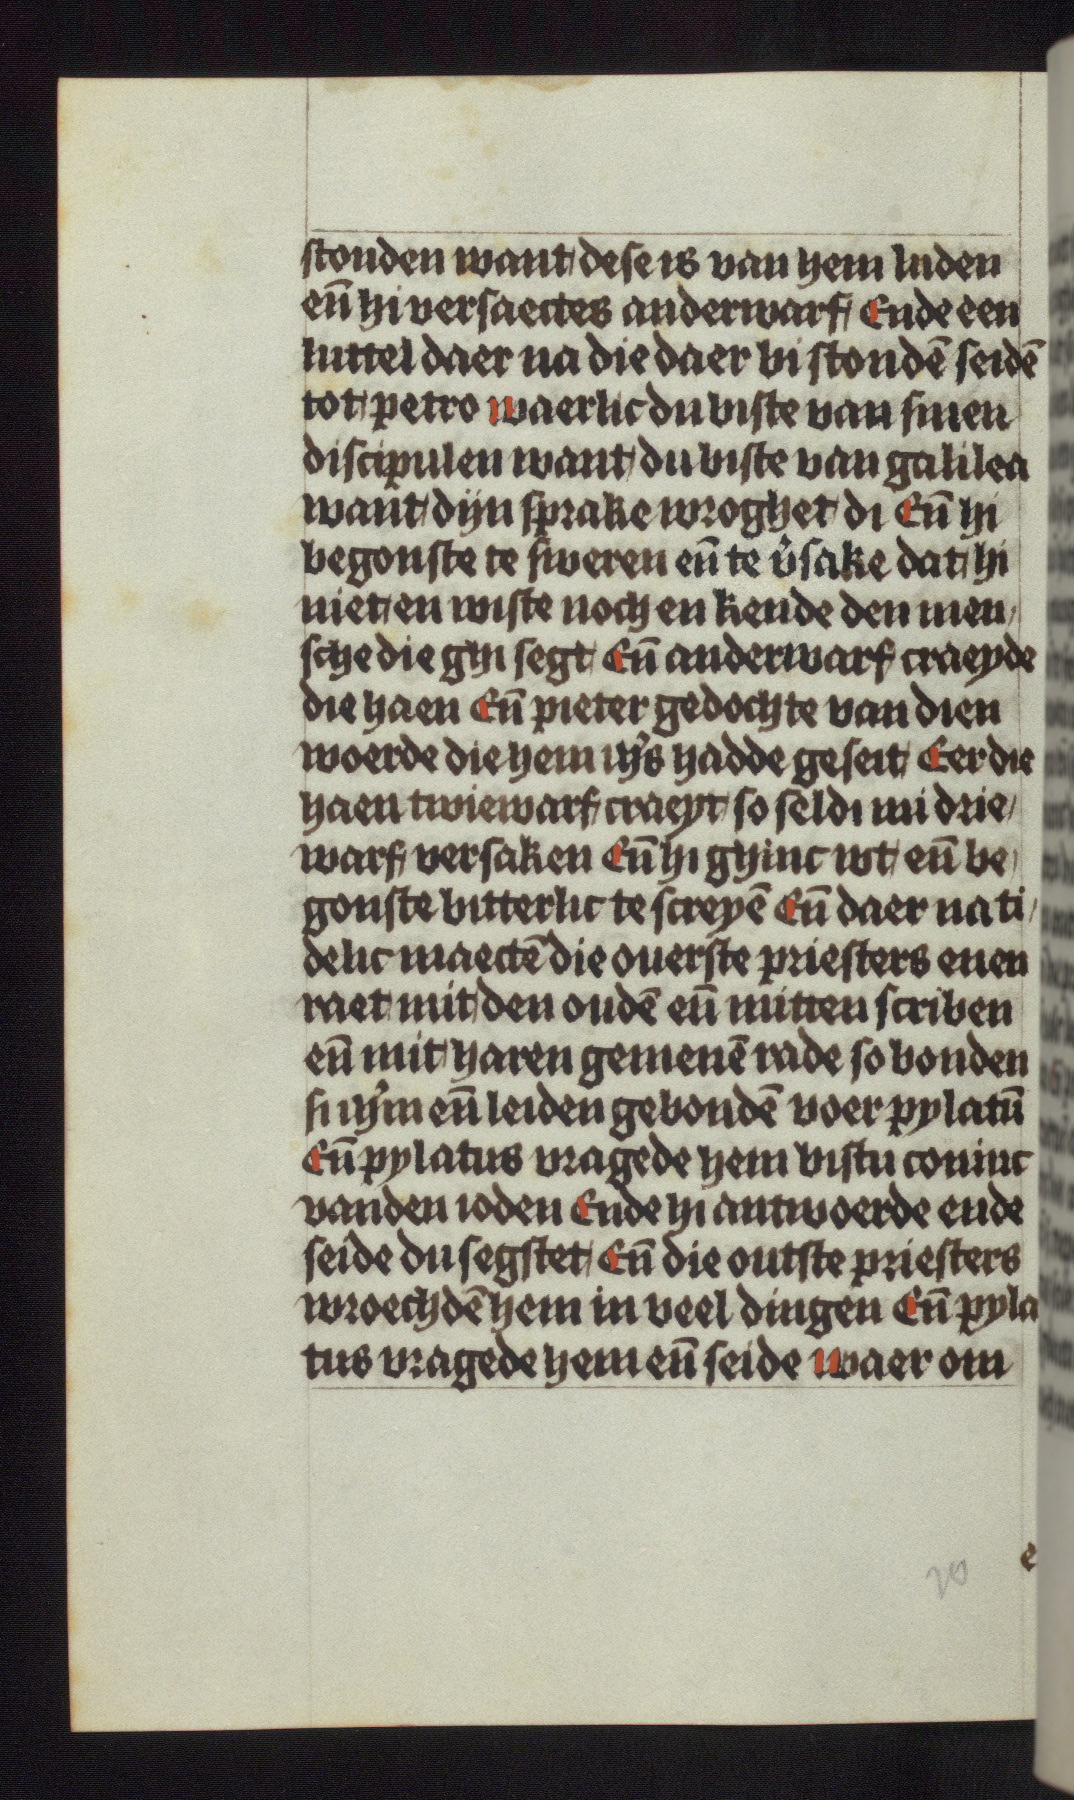 stonden want dese is van hem luden
en̄ hi versaectes anderwarf Ende een
luttel daer na die daer bi stondē seidē
tot petro waerlic du biste van sinen
discipulen want du biste van galilea
want dijn sprake wroghet di En̄ hi
begonste te sweren en̄ te v̉sake dat hi
niet en wiste noch en kende den men/
sche die ghi segt En̄ anderwarf craeyde
die haen En̄ pieter gedochte van dien
woerde die hem ih̉s hadde geseit Eer die
haen twiewarf craeyt so seldi mi drie/
warf versaken En̄ hi ghinc wt en̄ be/
gonste bitterlic te screyē En̄ daer na ti/
delic maectē die ouerste priesters enen
raet mit den oudē en̄ mitten scriben
en̄ mit haren gemenē rade so bonden
si ih̉m en̄ leiden gebondē voer pylatū
En̄ pylatus vragede hem bistu coninc
vanden ioden Ende hi antwoerde ende
seide du segstet En̄ die outste priesters
wroechdē hem in veel dingen En̄ pyla
tus vragede hem en̄ seide waer om
e